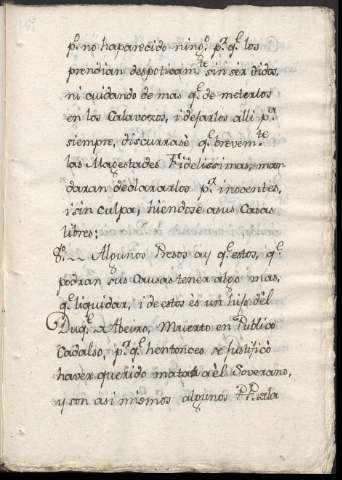 pr. no ha parecido ningo. pr. qe. los
prendian despoticamte. sin ser oidos,
ni cuidando de mas qe. de meterlos
en los Calavozos, i dejarlos alli pa.
siempre, discurrase qe. brevemte.
las Magestades Fidelissimas, man
daran declararlos pr. inocentes,
i sin culpa, hiendose a sus Casas
libres;
Algunos Presos ay qe. estos, qe.
podran sus Causas tener algo mas,
qe. liquidar, i de estos es un hijo del
Duqe. de Abeiro, Muerto en Publico
Cadalso, pr. qe. hentonces se justificò
haver querido matar àèl Soverano,
y son asi mismos algunos PPs. de la